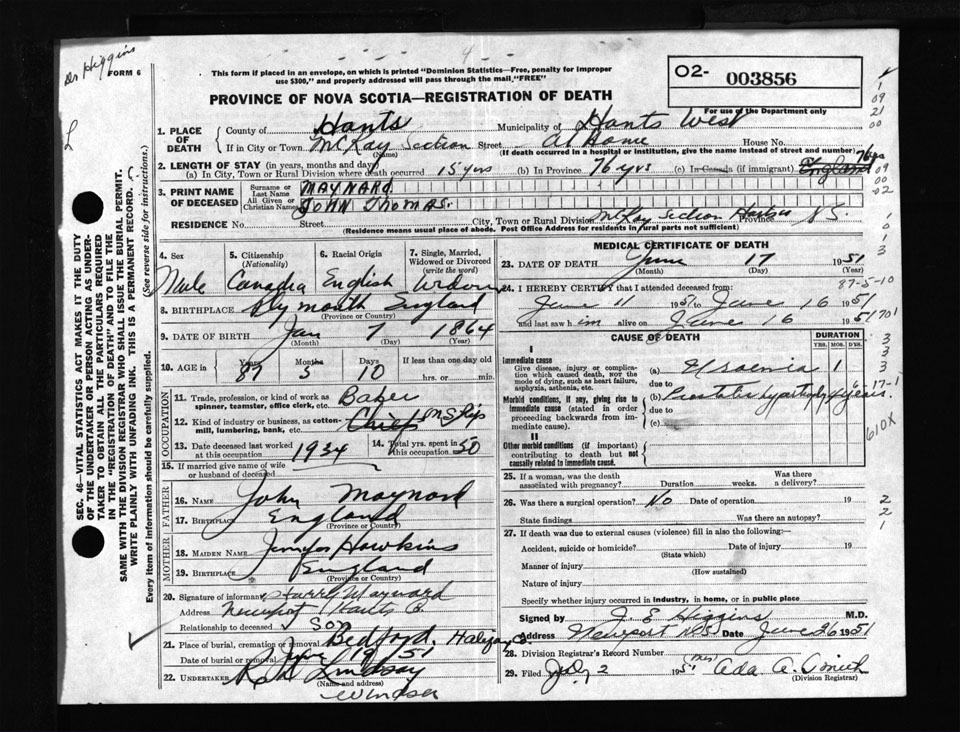 Dr Higgins
FORM 6
This form if placed in an envelope, on which is printed "Dominion Statistics—Free, penalty for improper
use $300," and properly addressed will pass through the mail, "FREE"
O2- 003856
For use of the Department only
PROVINCE OF NOVA SCOTIA—REGISTRATION OF DEATH
1. PLACE OF DEATH
County of Hants Municipality of Hants West
If in City or Town McKay Section Street At Home House No.
(Name) (If death occurred in a hospital or institution, give the name instead of street and number)
2. LENGTH OF STAY (in years, months and days)
(a) In City, Town or Rural Division where death occurred 15 yrs (b) In Province 76 yrs (c) In Canada (if immigrant) England 76 yrs
3. PRINT NAME OF DECEASED
Surname or Last Name MAYNARD
All Given or Christian Names JOHN THOMAS.
RESIDENCE No. Street City, Town or Rural Division McKay Section Province
(Residence means usual place of abode. Post Office Address for residents in rural parts not sufficient)
4. Sex Male
5. Citizenship (Nationality)
6. Racial Origin English
7. Single, Married, Widowed or Divorced (write the word)
8. BIRTHPLACE Plymouth England
(Province or Country)
9. DATE OF BIRTH Jan 7 1864
(Month) (Day) (Year)
10. AGE in Years 87 Months 5 Days 10 If less than one day old
hrs. or min.
OCCUPATION
11. Trade, profession, or kind of work as spinner, teamster, office clerk, etc. Baker
12. Kind of industry or business, as cotton-mill, lumbering, bank, etc. on Ship
13. Date deceased last worked at this occupation 1934
14. Total yrs. spent in this occupation 50
15. If married give name of wife or husband of deceased
FATHER
16. NAME John Maynard
17. Birthplace England
(Province or Country)
MOTHER
18. MAIDEN NAME Jennifer Hawkins
19. BIRTHPLACE England
(Province or Country)
20. Signature of informant Harry Maynard
Address Newport Hants Co.
Relationship to deceased Son
21. Place of burial, cremation or removal Bedford, Halifax Co.
Date of burial or removal June 19/51
22. UNDERTAKER Lindsay
(Name and address)
Windsor
MEDICAL CERTIFICATE OF DEATH
23. DATE OF DEATH June 17 1951
(Month) (Day) (Year)
24. I HEREBY CERTIFY that I attended deceased from:
June 11 1951 to June 16 1951
and last saw him alive on June 16 1951
CAUSE OF DEATH
DURATION
YRS. MOS. D'YS.
I
Immediate cause
Give disease, injury or complication which caused death, not the mode of dying, such as heart failure, asphyxia, asthenia, etc.
(a) Uraemia 1
due to
Morbid conditions, if any, giving rise to immediate cause (stated in order proceeding backwards from immediate cause).
(b) Prostatic hypertrophy years.
due to
(c)
II
Other morbid conditions (if important) contributing to death but not causally related to immediate cause.
25. If a woman, was the death associated with pregnancy? Duration weeks. Was there a delivery?
26. Was there a surgical operation? NO Date of operation 19
State findings Was there an autopsy?
27. If death was due to external causes (violence) fill in also the following:
Accident, suicide or homicide? Date of injury 19
(State which)
Manner of injury
(How sustained)
Nature of injury
Specify whether injury occurred in industry, in home, or in public place
Signed by J. E Higgins M.D.
Address Newport N.S. Date June 26 1951
28. Division Registrar's Record Number
29. Filed 2 1951 Mrs Ada A.
(Division Registrar)
SEC. 46—VITAL STATISTICS ACT MAKES IT THE DUTY
OF THE UNDERTAKER OR PERSON ACTING AS UNDER-
TAKER TO OBTAIN ALL THE PARTICULARS REQUIRED
IN THE "REGISTRATION OF DEATH" AND TO FILE THE
SAME WITH THE DIVISION REGISTRAR WHO SHALL ISSUE THE BURIAL PERMIT.
WRITE PLAINLY WITH UNFADING INK. THIS IS A PERMANENT RECORD.
Every item of information should be carefully supplied. (See reverse side for instructions.)
1
09
21
00
09
00
02
1
0
1
3
87-5-10
701
3
3
3
17-1
610X
2
2
1